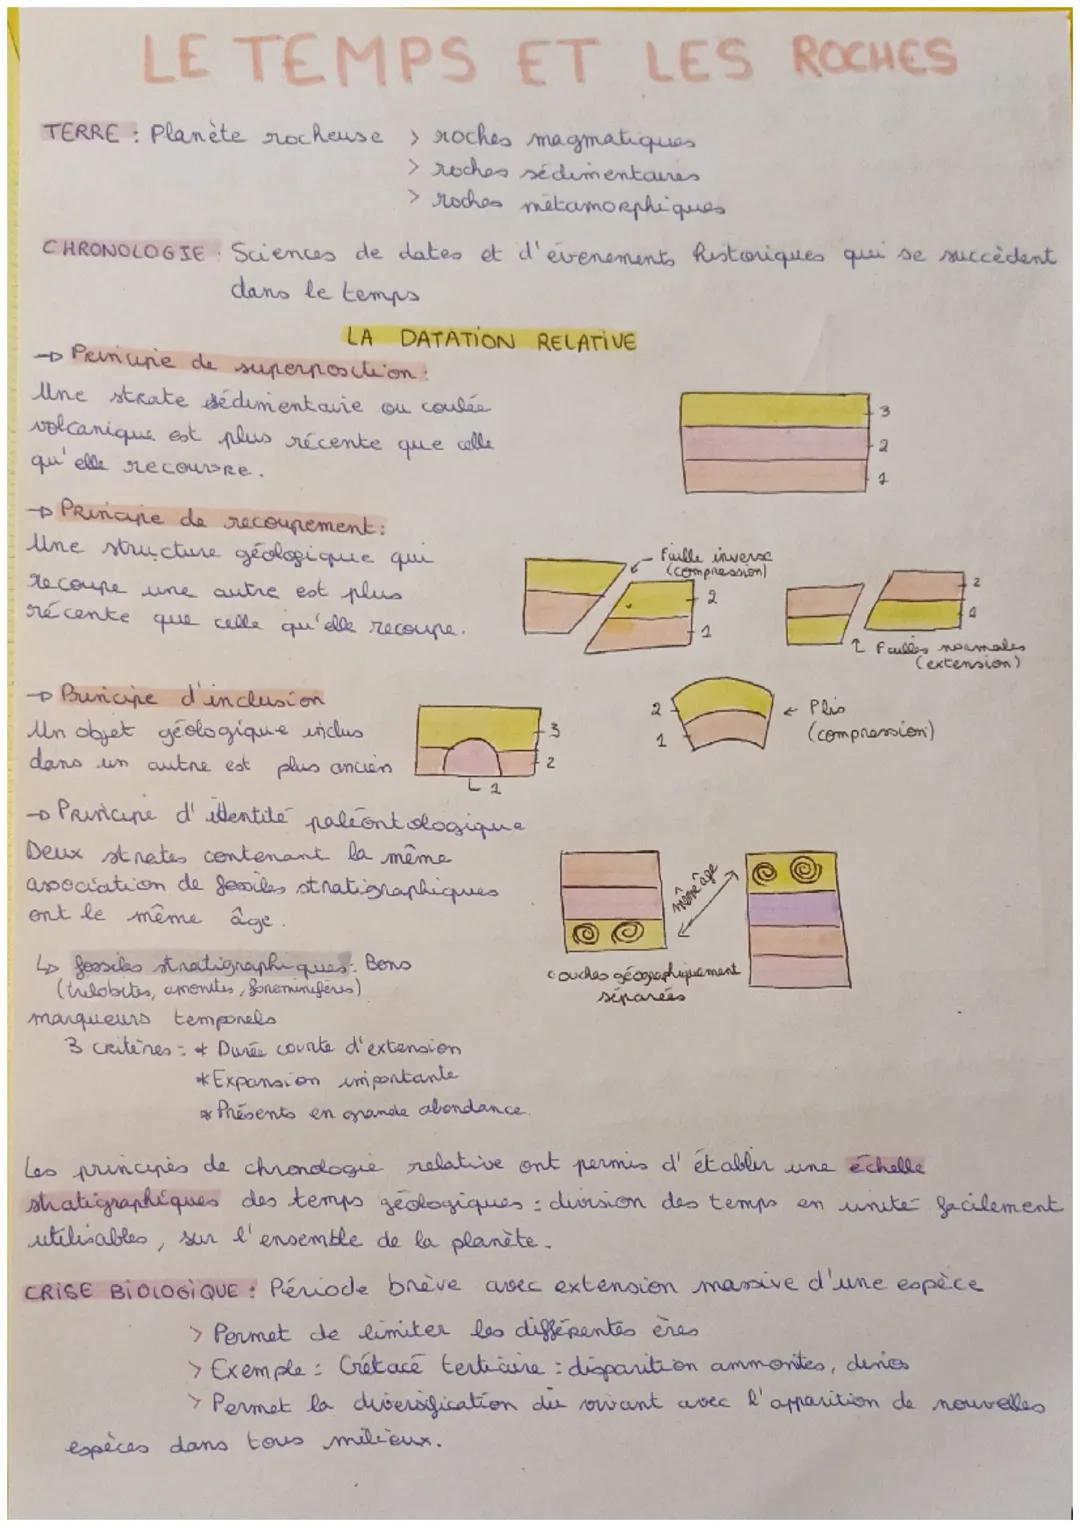 LE TEMPS ET LES ROCHES
TERRE : Planète rocheuse > roches magmatiques
> roches sédimentaires
> roches métamorphiques
CHRONOLOGIE : Sciences de dates et d'évenements historiques qui se succèdent
dans le temps
LA DATATION RELATIVE
→ Principe de superposition :
Une strate sédimentaire ou coulée
volcanique est plus récente que celle
qu'elle recouvre.
3
2
1
→ Principe de recoupement :
Une structure géologique qui
recoupe une autre est plus
récente que celle qu'elle recoupe.
Faille inverse
(compression)
2
1
2
1
Failles normales
(extension)
→ Principe d'inclusion
Un objet géologique inclus
dans un autre est plus ancien
3
2
1
2
1
← Plis
(compression)
→ Principe d'identité paléontologique
Deux strates contenant la même
association de fossiles stratigraphiques
ont le même âge.
même âge
couches géographiquement
séparées
↳ fossiles stratigraphiques : Bons
(trilobites, amonites, foreminifères)
marqueurs temporels
3 critères : * Durée courte d'extension
* Expansion importante
* Présents en grande abondance.
Les principes de chronologie relative ont permis d'établir une échelle
stratigraphiques des temps géologiques : division des temps en unité facilement
utilisables, sur l'ensemble de la planète.
CRISE BIOLOGIQUE : Période brève avec extension massive d'une espèce
> Permet de limiter les différentes ères
> Exemple : Crétacé tertiaire : disparition ammonites, dinos
> Permet la diversification du vivant avec l'apparition de nouvelles
espèces dans tous milieux.